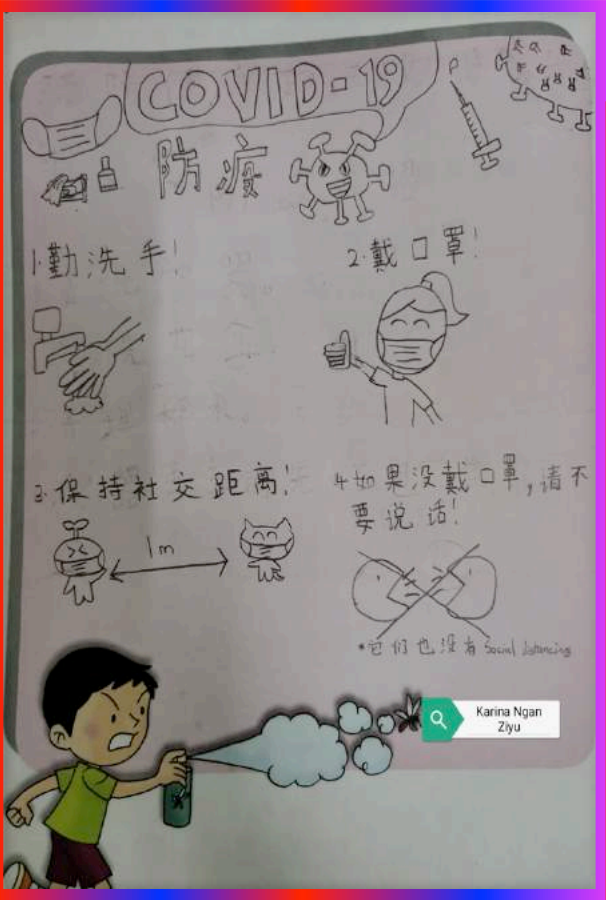 COVID-19
防疫
1.勤洗手！
2.戴口罩！
3.保持社交距离！
1m
4.如果没戴口罩，请不
要说话！
*它们也没有Social distancing
Karina Ngan
Ziyu